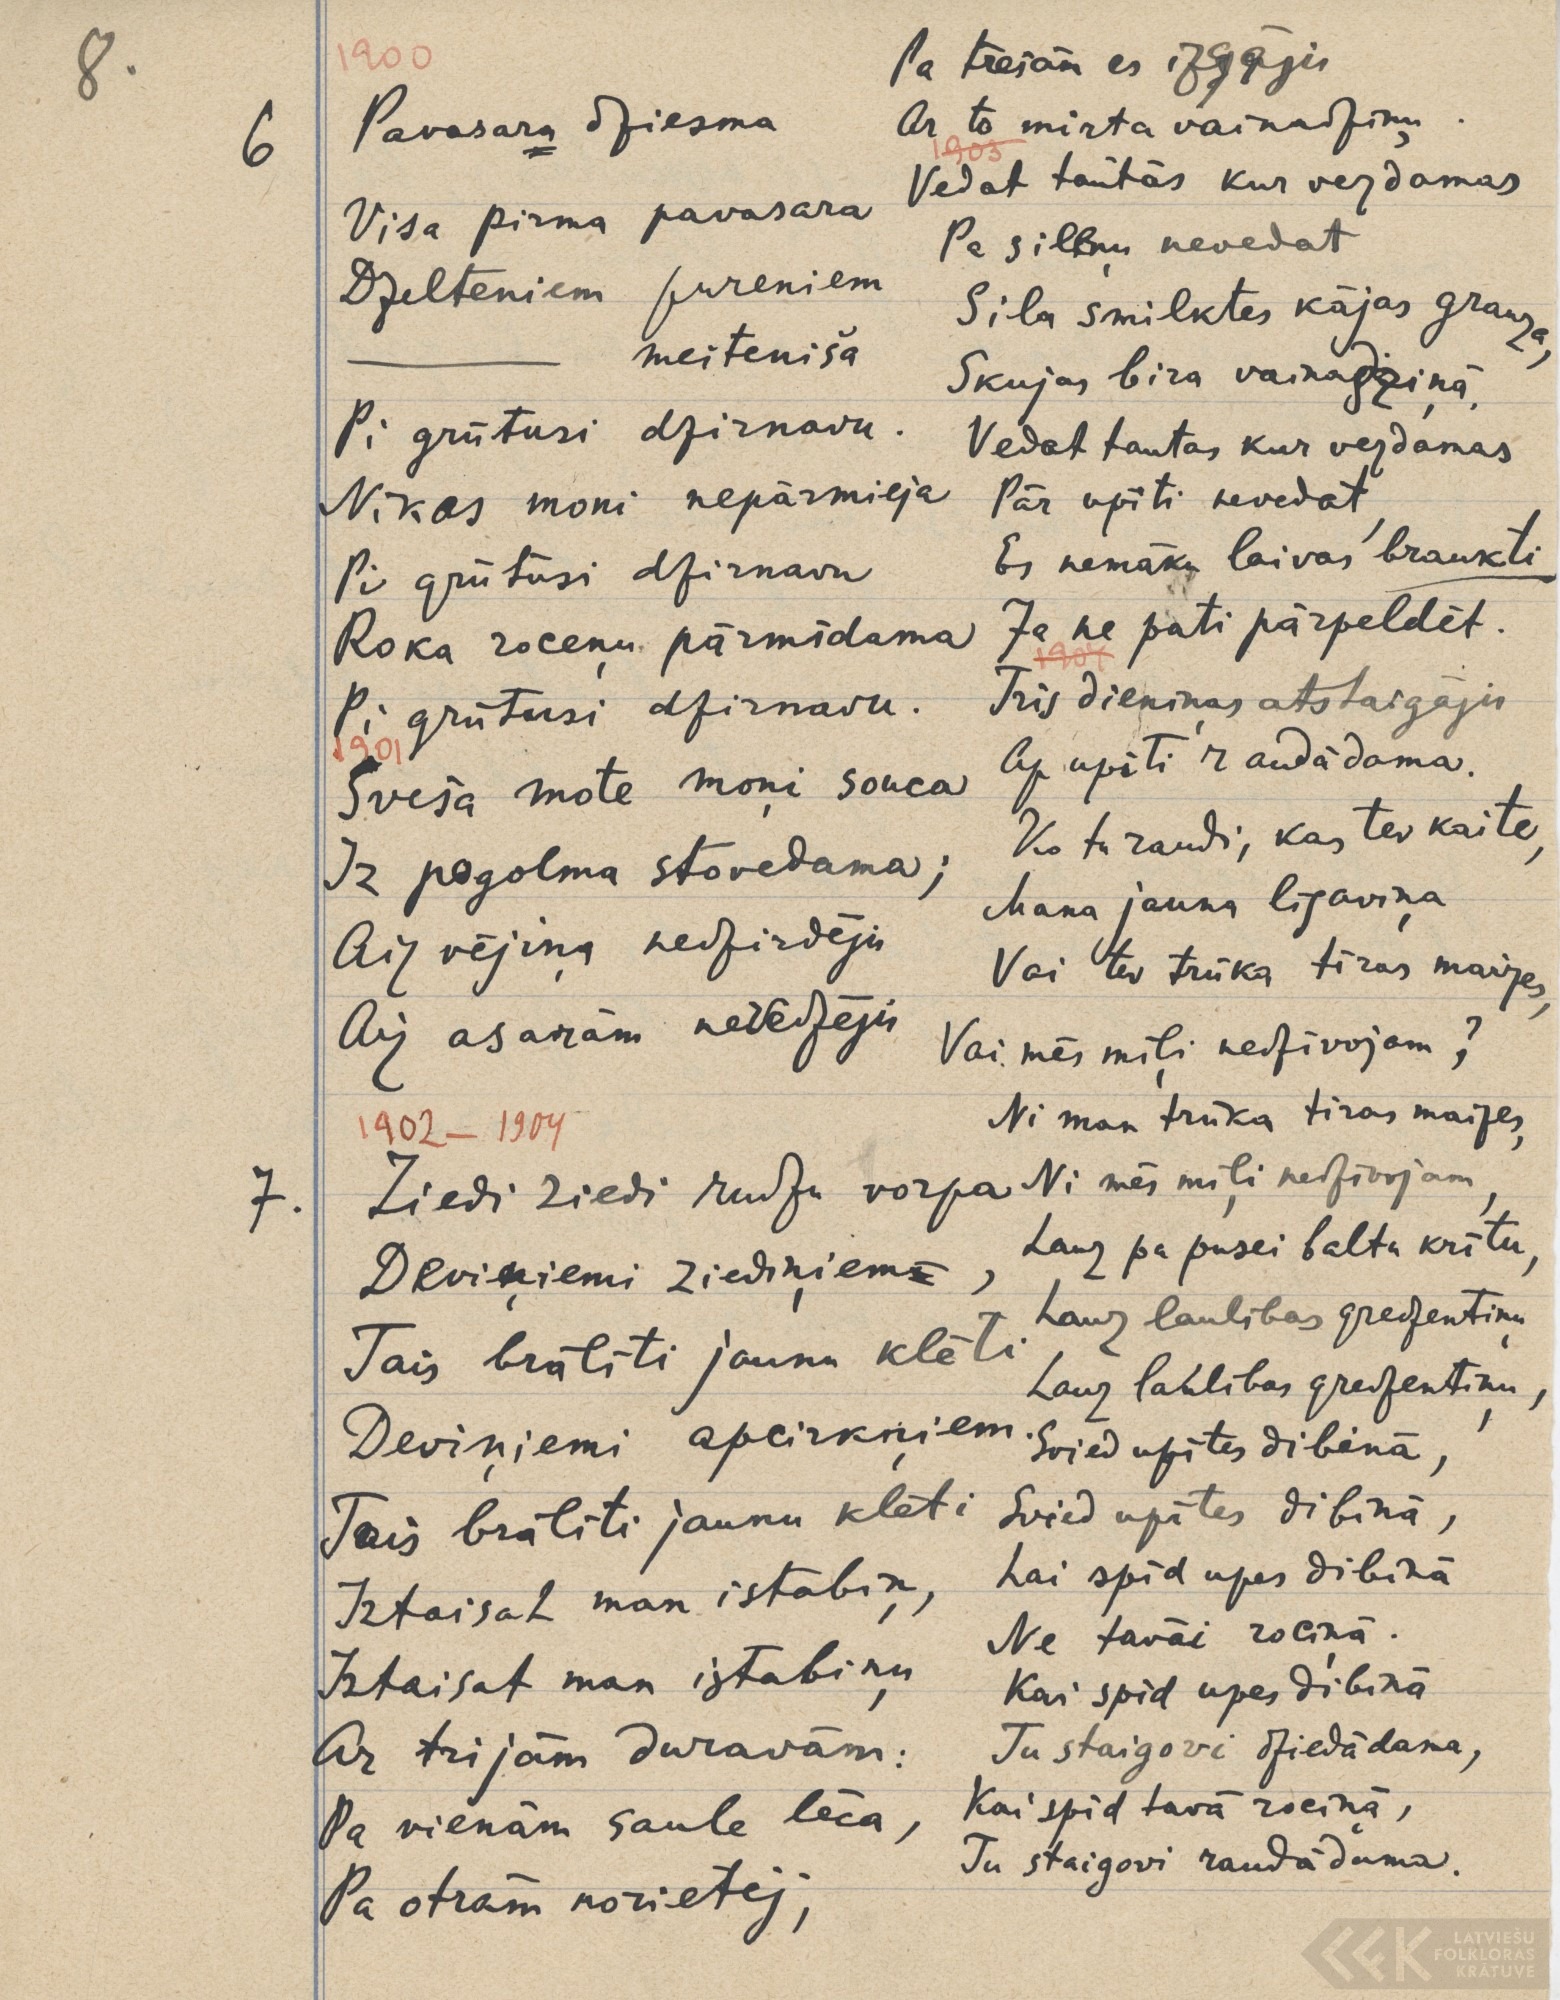 8.
1900
6
Pavasara dziesma
Visa pirma pavasara
Dzelteniem pureniem
meiteniša
Pi grūtusi dzirnavu.
Nikas moni nepārmieja
Pi grūtūsi dzirnavu
Roka roceņu pārmīdama
Pi grūtusi dzirnavu.
1901
Sveša mote moņi souca
Iz pogolma stovedama;
Aiz vējiņa nedzirdēju
Aiz asarām neredzēju
1902 – 1904
7.
Ziedi ziedi rudzu vorpa
Deviņiemi ziediņiem,
Tais brālīti jaunu klēti
Deviņiemi apcirkņiem.
Tais brālīti jaunu klēti
Iztaisat man istabiņ,
Iztaisat man istabiņu
Ar trijām duravām:
Pa vienām saule lēca,
Pa otrām norietēj;
Pa trešām es izgāju
Ar to mirta vainadziņu.
1903
Vedat tautās kur vezdamas
Pa siliņu nevedat
Sila smilktes kājas grauza,
Skujas bira vainadziņā,
Vedat tautas kur vezdamas
Pār upīti nevedat,
Es nemāku laivas braukti
Ja ne pati pārpeldēt.
1904
Trīs dieniņas atstaigāju
Ap upīti raudādama.
Ko tu raudi, kas tev kaite,
Mana jauna līgaviņa
Vai tev trūka tīras maizes,
Vai mēs mīļi nedzīvojam?
Ni man trūka tīras maizes,
Ni mēs mīļi nedzīvojam,
Lauz pa pusei balta krītu,
Lauz laulības gredzentiņu
Lauz laulības gredzentiņu,
Svied upītes dibenā,
Svied upītes dibinā,
Lai spīd upes dibinā
Ne tavāi rociņā.
Kai spīd upes dibinā
Tu staigovi dziedādama,
Kai spīd tavā rociņā,
Tu staigovi raudādama.
LATVIEŠU
FOLKLORAS
KRĀTUVE